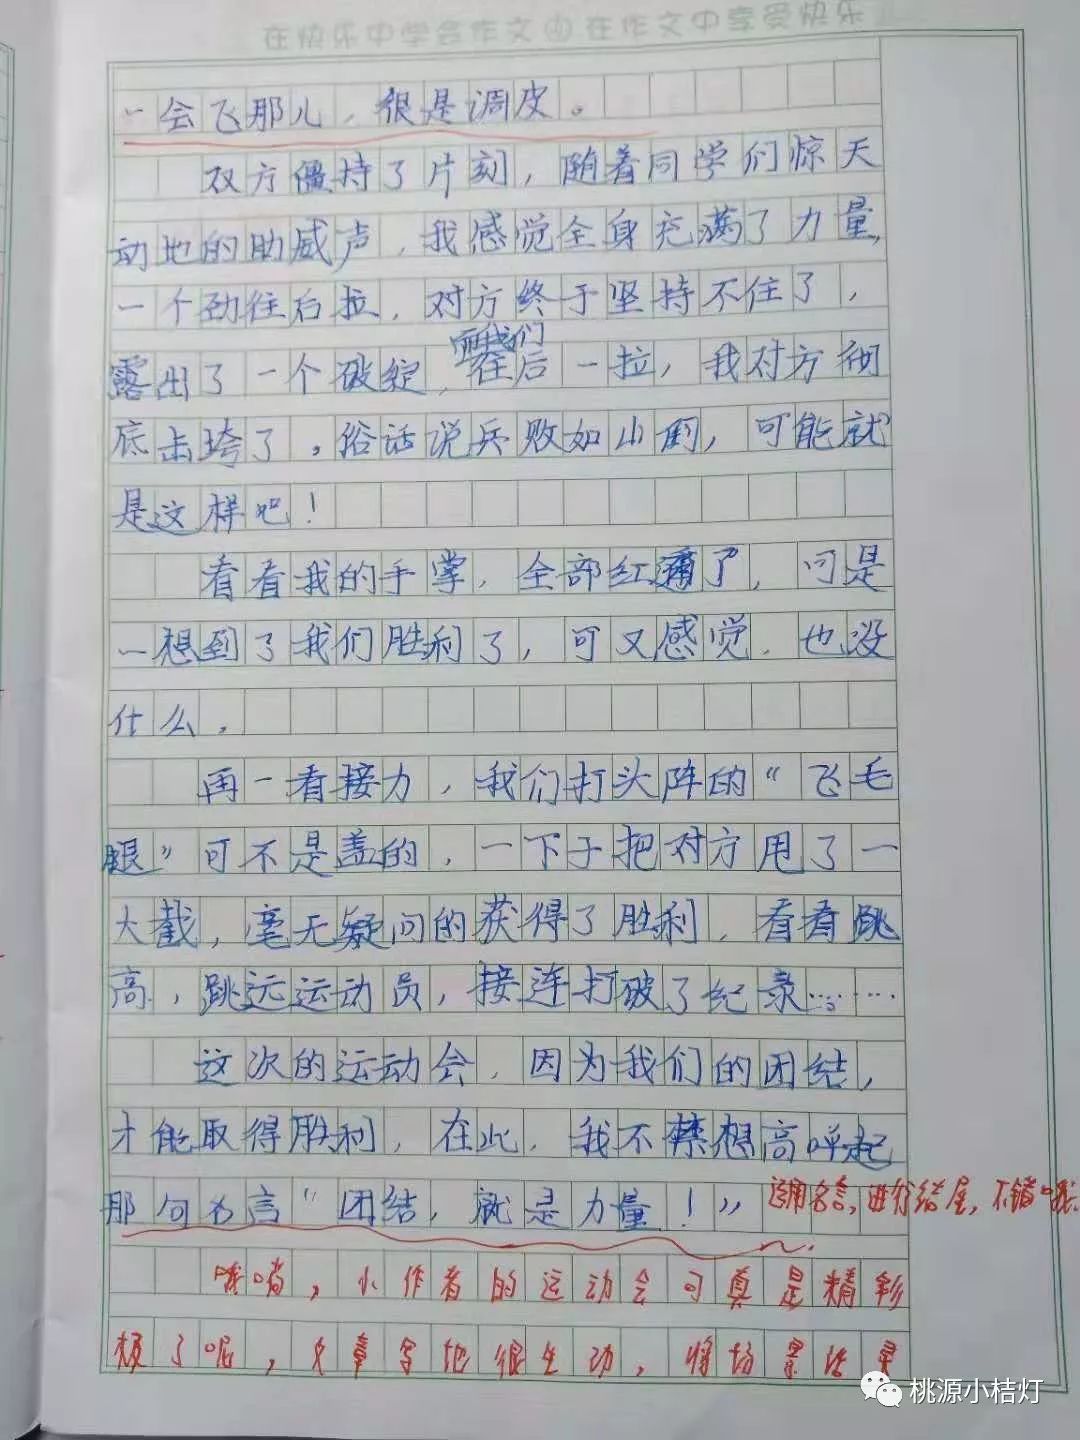 在快乐中学会作文 在作文中享受快乐
一会飞那儿，很是调皮。
双方僵持了片刻，随着同学们惊天
动地的助威声，我感觉全身充满了力量，
一个劲往后拉，对方终于坚持不住了，
而我们
露出了一个破绽，往后一拉，我对方彻
底击垮了。俗话说兵败如山倒，可能就
是这样吧！
看看我的手掌，全部红通了，可是
一想到了我们胜利了，可又感觉，也没
什么。
再一看接力，我们打头阵的“飞毛
腿”可不是盖的，一下子把对方甩了一
大截，毫无疑问的获得了胜利，看看跳
高，跳远运动员，接连打破了纪录……
这次的运动会，因为我们的团结，
才能取得胜利，在此，我不禁想高呼起
那句名言“团结，就是力量！”
运用名言，进行结尾，不错哦。
小作者的运动会可真是精彩
极了呢，文章写地很生动，将场景活灵
桃源小桔灯